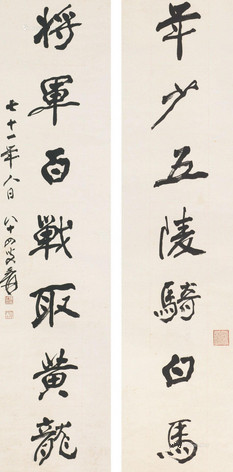 年少五陵騎白馬
將軍百戰取黃龍
七十一年人日 八十四叟爰